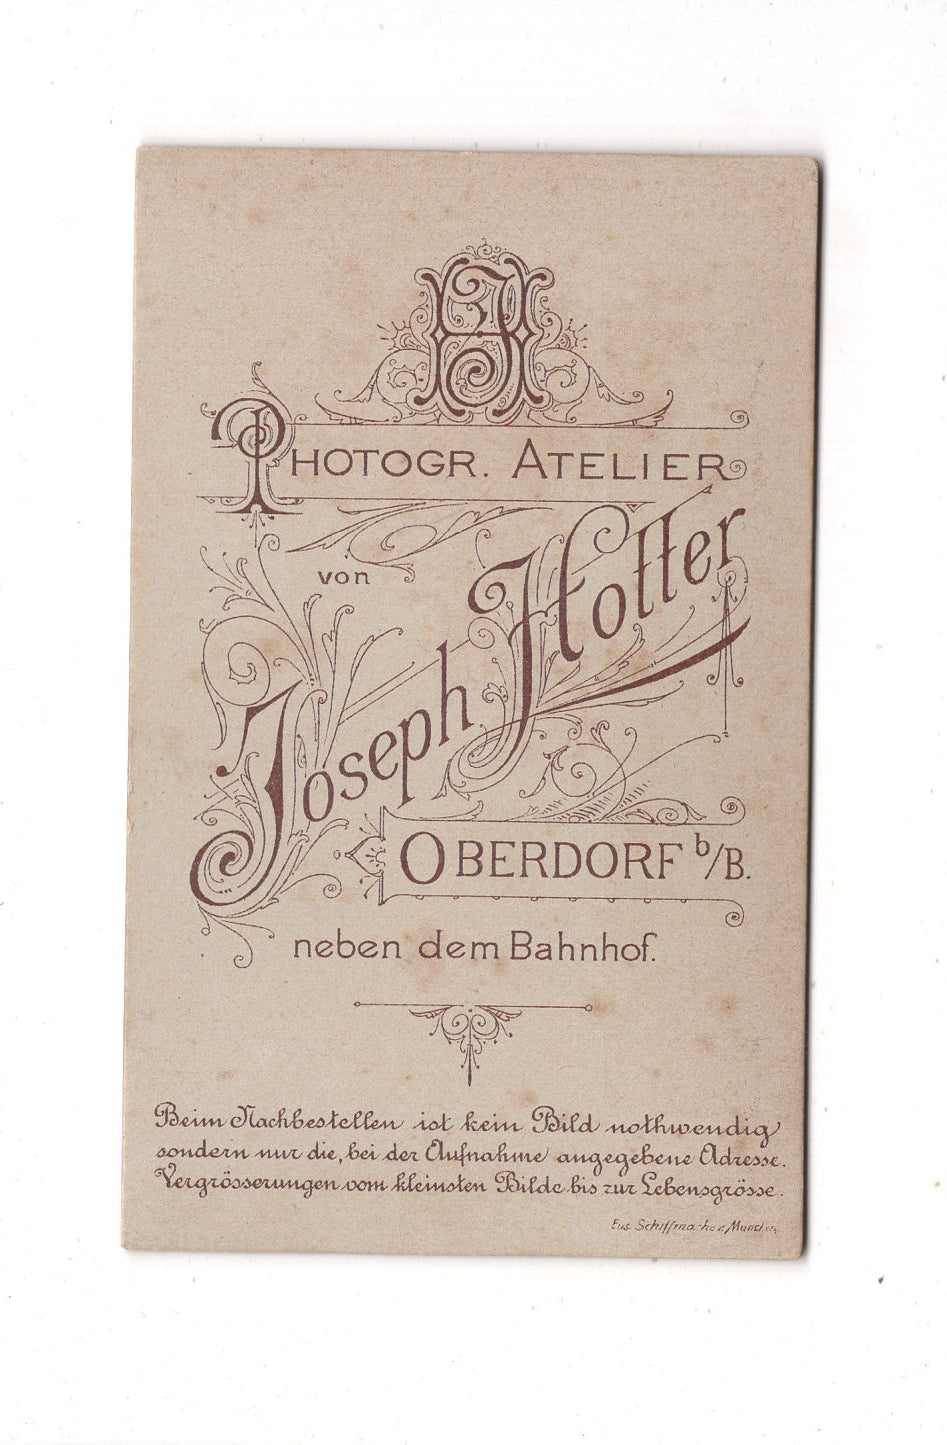 HJ
PHOTOGR. ATELIER
von
Joseph Hotter
OBERDORF b/B.
neben dem Bahnhof.
Beim Nachbestellen ist kein Bild nothwendig
sondern nur die, bei der Aufnahme angegebene Adresse.
Vergrösserungen vom kleinsten Bilde bis zur Lebensgrösse.
Eus. Schiffmacher, München